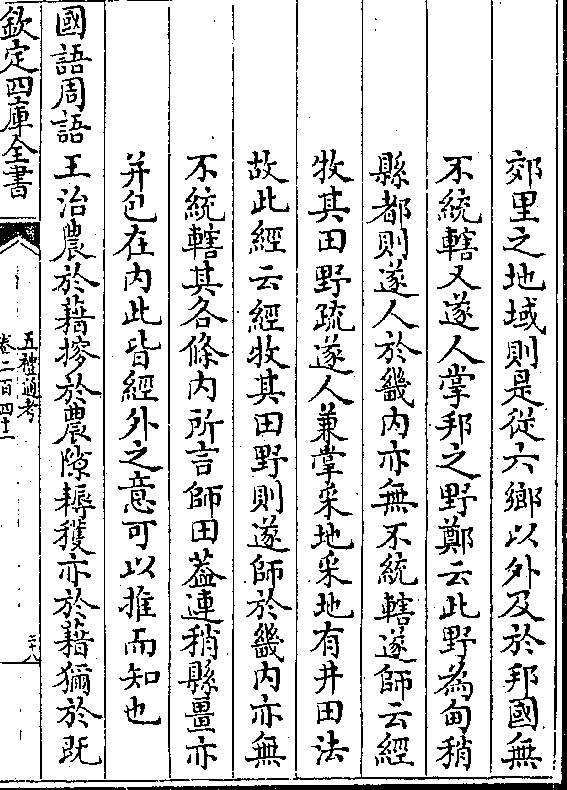 郊里之地域則是從六鄉以外及於邦國無
不統轄又遂人掌邦之野鄭云此野為甸稍
縣都則遂人於畿內亦無不統轄遂師云經
牧其田野疏遂人兼掌采地采地有井田法
故此經云經牧其田野則遂師於畿內亦無
不統轄其各條內所言師田葢連稍縣畺亦
并包在內此皆經外之意可以推而知也
國語周語王治農於藉搜於農隙耨穫亦於藉獮於既
欽定四庫全書
五禮通考
卷二百四十二
三十八